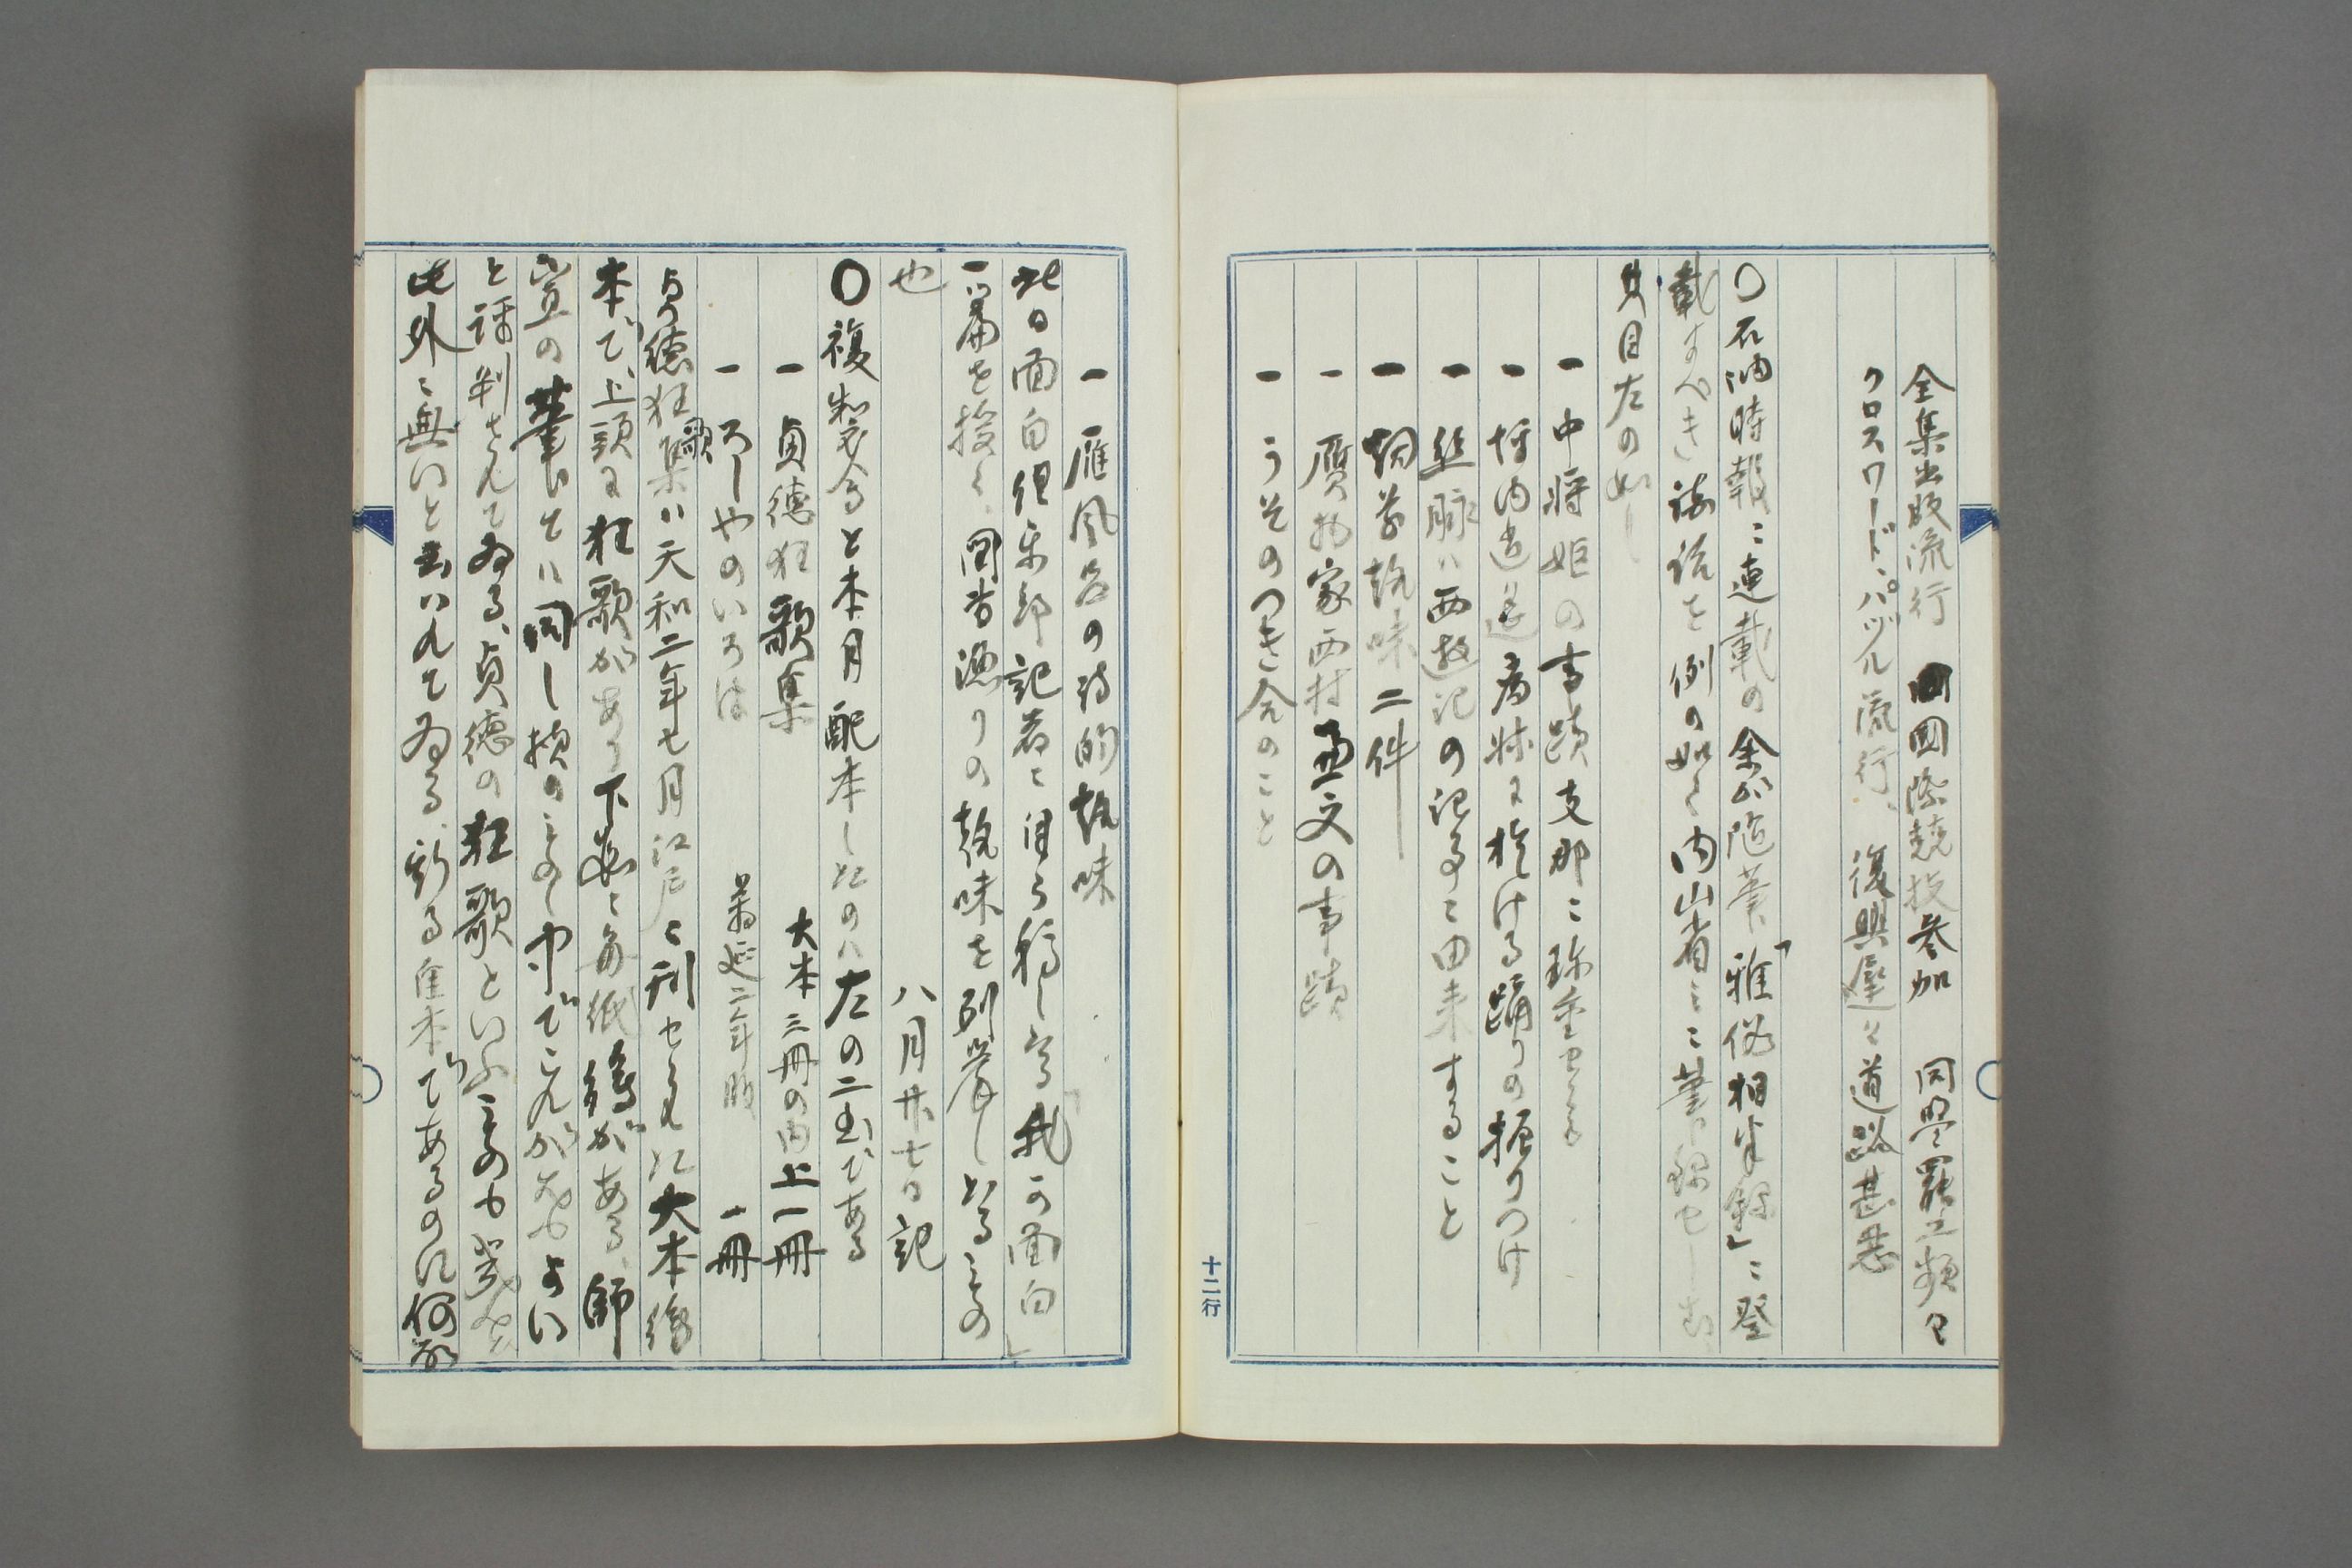 全集出版流行 国際競技参加 同盟罷工頻々
クロスワード、パヅル流行、復興遅々道路甚悪
〇石油時報ニ連載の余が随筆「雅俗相半録」ニ登
載すべき談話を例の如く内山省三ニ筆録せしむ
其目左の如し
一 中将姫の事蹟支那ニ珍重せらる
一 坪内逍遥病牀に於ける踊りの振りつけ
一 西遊記の記事に由来すること
一 烟草趣味二件
一 贋物家西村兼文の事蹟
一 うそのつき合のこと
十二行
一 雁風呂の詩的趣味
此日面白倶楽部記者に自ら稿し「我が面白」
一篇を授く、間者漁りの趣味を列挙したるもの
也 八月廿七日記
〇複製会と本月配本したのハ左の二書である
一 貞徳狂歌集 大本三冊の内上一冊
一 ろしやのいろは 萬延二年版 一冊
貞徳狂歌集ハ天和二年七月江戸に刊せられた大本絵
本で、上頭に狂歌があり下方に毎紙絵がある、師
宣の筆とは同じ様のもの中でこれが尤もよい
と評判されてゐる、貞徳の狂歌といふもの
此外ニ無いと云ハれてゐる、斯る隹本であるのに何故